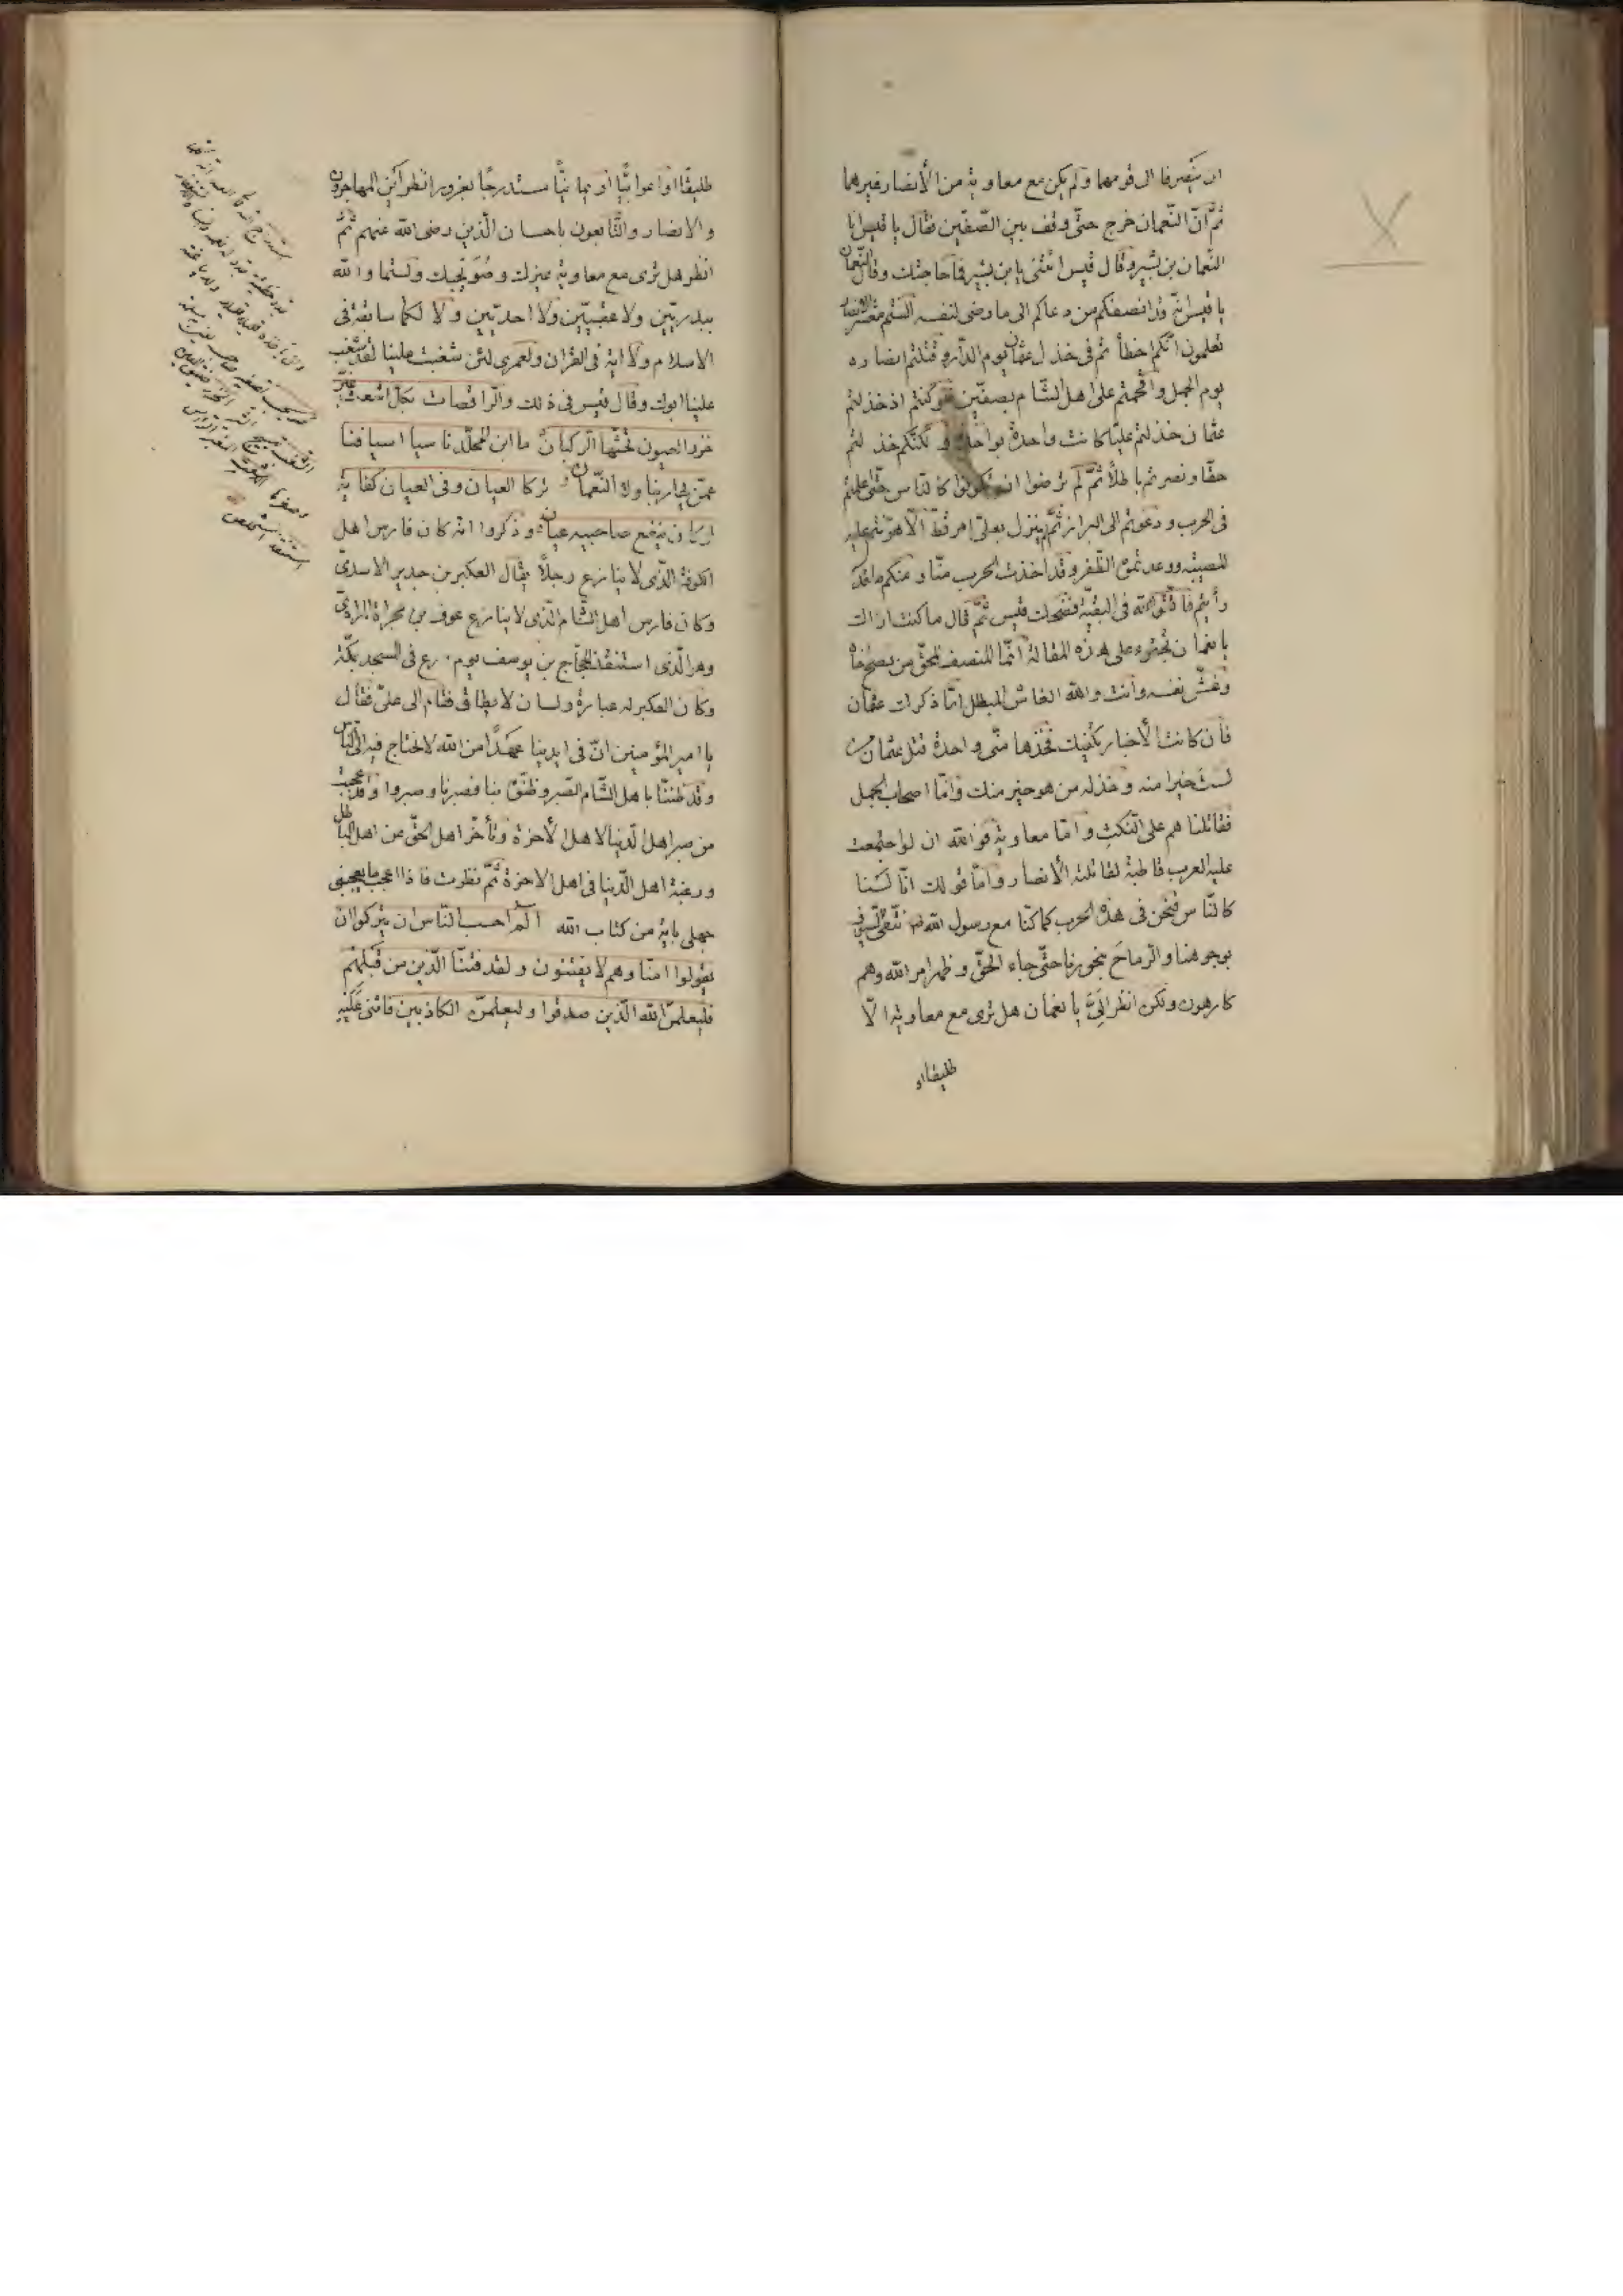 ان ينصرفا الى قومهما ولم يكن مع معاوية من الأنصار غيرهما
ثمّ انّ النّعمان خرج حتّى وقف بين الصّفّين فقال يا قيس انا
النّعمان بن بشير وقال قيس يا بن بشير فما حاجتك وقال النّعمان
يا قيس انّه قد انصفكم من دعاكم الى ما رضى لنفسه الستم معشر الانصار
تعلمون انّكم اخطأتم فى خذل عثمان يوم الدّار وقتلتم انصاره
يوم الجمل واقحمتم على اهل الشّام بصفّين فلو كنتم اذ خذلتم
عثمان خذلتم عليّا كانت واحدة بواحدة ولكنّكم خذلتم
حقّا ونصرتم باطلاً ثمّ لم ترضوا ان تكونوا كالنّاس حتّى اعلمتم
فى الحرب ودعوتم الى البراز ثمّ لم ينزل بعلىّ امر قطّ الّا هوّنتم عليه
المصيبة ووعدتموه الظّفر وقد اخذت الحرب منّا ومنكم ما قد
رأيتم فاتّقوا الله فى البقيّة فضحك قيس ثمّ قال ما كنت اراك
يا نعمان تجترء على هذه المقالة انّما المنصف المحقّ من نصح اخاه
وغشّ نفسه وانت والله الغاشّ المبطل امّا ذكرك عثمان
فأن كانت الأخبار تكفيك فخذها منّى واحدة قتل عثمان من
لست خيرا منه وخذله من هو خير منك وامّا اصحاب الجمل
فقاتلناهم على النّكث وامّا معاوية فو الله ان لو اجتمعت
عليه العرب قاطبة لقاتلته الأنصار وامّا قولك انّا لسنا
كالنّاس فنحن فى هذه الحرب كما كنّا مع رسول الله نتّقى السّيوف
بوجوهنا والرّماح بنحورنا حتّى جاء الحقّ وظهر امر الله وهم
كارهون ولكن انظر يا نعمان هل ترى مع معاوية الّا
طليقا او
طليقًا او اعرابيًّا او يمانيًّا مستدرجًا بغرور انظر اين المهاجرون
والانصار والتّابعون باحسان الّذين رضى الله عنهم ثمّ
انظر هل ترى مع معاوية غيرك وصويحبك ولستما والله
ببدريّين ولا عقبيّين ولا احديّين ولا لكما سابقة فى
الاسلام ولا اية فى القران ولعمرى لئن شغبت علينا لقد شغب
علينا ابوك وقال قيس فى ذلك والرّاقصات بكلّ اشعث اغبر
خوص العيون تحثّها الرّكبان ما ابن المخلّد ناسيا اسيافنا
عمّن نحاربنا ولا النّعمان تركا العيان وفى العيان كفاية
لو كان ينفع صاحبيه عيان وذكروا انّه كان فارس اهل
الكوفة الّذى لا ينازع رجلاً يقال العكبر بن جدير الاسدىّ
وكان فارس اهل الشّام الّذى لا ينازع عوف بن مجزاة المرادىّ
وهو الّذى استنقذ الحجّاج بن يوسف يوم صرع فى المسجد بمكّة
وكان العكبر له عبارة ولسان لا يطاق فقام الى علىّ فقال
يا امير المؤمنين انّ فى ايدينا عهدًا من الله لا نحتاج فيه الى النّاس
وقد ظننّا باهل الشّام الصّبر وظنّوه بنا فصبرنا وصبروا وقد عجبت
من صبر اهل الدّنيا لاهل الأخرة وتأخّر اهل الحقّ عن اهل الباطل
ورغبة اهل الدّنيا فى اهل الاخرة ثمّ نظرت فاذا اعجب ما يعجبنى
جهلى باية من كتاب الله الم احسب النّاس ان يتركوا ان
يقولوا امنّا وهم لا يفتنون ولقد فتنّا الّذين من قبلهم
فليعلمنّ الله الّذين صدقوا وليعلمنّ الكاذبين فاثنى عليه